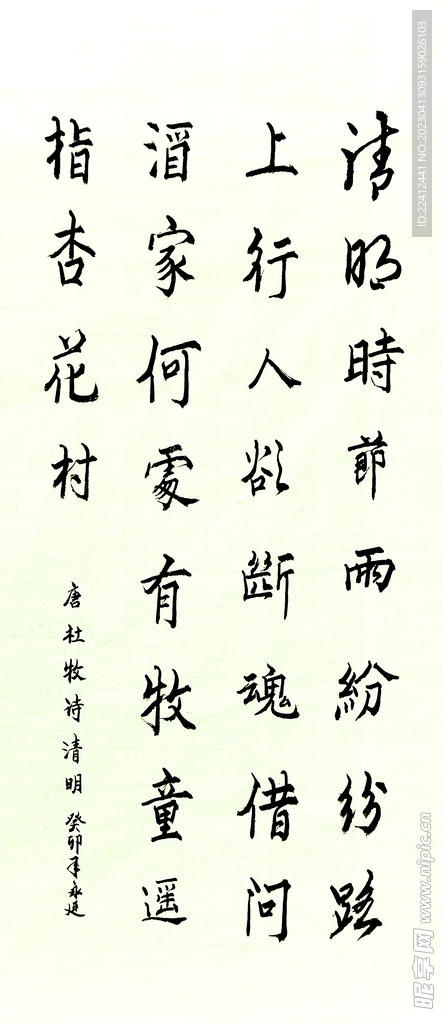 清明時節雨紛紛路
上行人欲斷魂借問
酒家何處有牧童遥
指杏花村
唐杜牧诗清明 癸卯年永廷
ID:22412441 NO:20230413093159026103
昵享网 www.nipic.cn